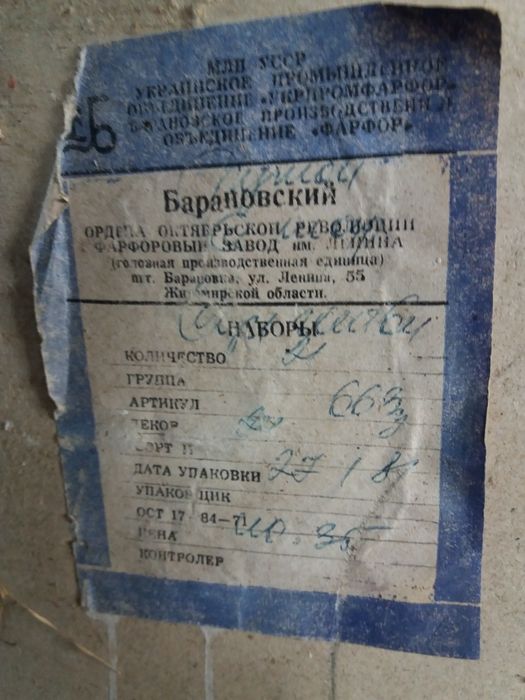 МЛП УССР
УКРАИНСКОЕ ПРОМЫШЛЕННОЕ
ОБЪЕДИНЕНИЕ «УКРПРОМФАРФОР»
БАРАНОВСКОЕ ПРОИЗВОДСТВЕННОЕ
ОБЪЕДИНЕНИЕ «ФАРФОР»
Барановский
ОРДЕНА ОКТЯБРЬСКОЙ РЕВОЛЮЦИИ
ФАРФОРОВЫЙ ЗАВОД им. ЛЕНИНА
(головная производственная единица)
пгт. Барановка, ул. Ленина, 55
Житомирской области.
НАБОРЫ
КОЛИЧЕСТВО
ГРУППА
АРТИКУЛ 669
ДЕКОР
СОРТ II
ДАТА УПАКОВКИ 27 / 8
УПАКОВЩИК
ОСТ 17-84-71
ЦЕНА 35
КОНТРОЛЕР